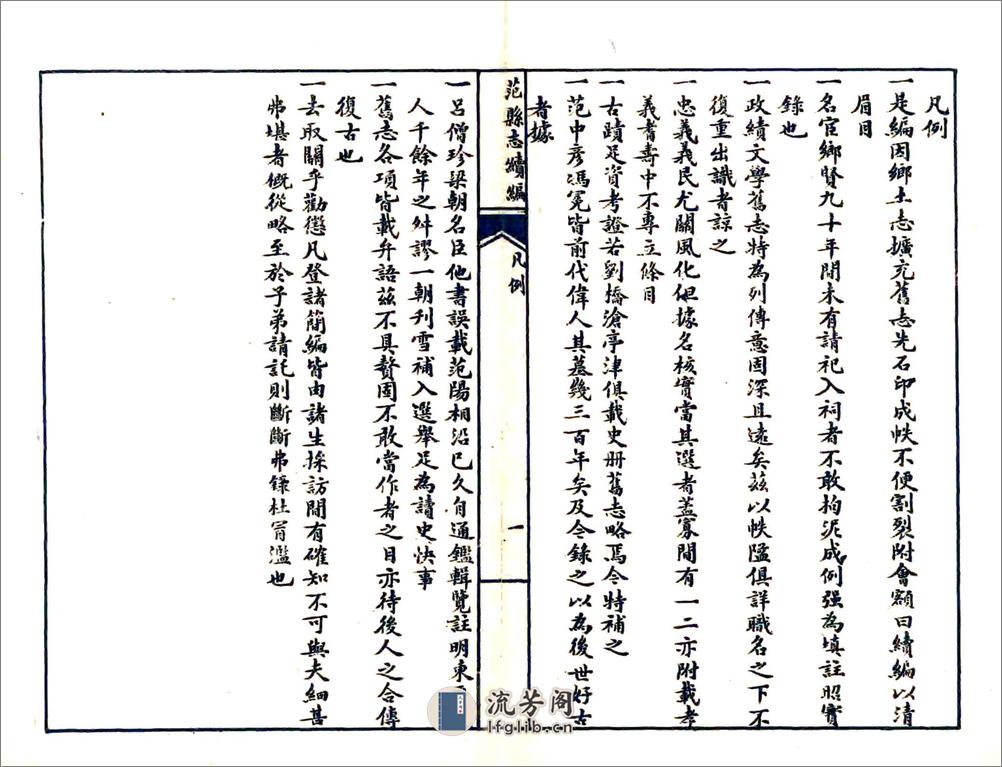 凡例
一是編因鄉土志擴充舊志先石印成帙不便割裂附會額曰續編以清
眉目
一名宦鄉賢九十年間未有請祀入祠者不敢拘泥成例强為填註昭實
錄也
一政績文學舊志特為列傳意固深且遠矣茲以帙隘俱詳職名之下不
復重出識者諒之
一忠義義民尤關風化但據名核實當其選者蓋寡間有一二亦附載孝
義耆壽中不專立條目
一古蹟足資考證若劉橋滄亭津俱載史册舊志略焉今特補之
一范中彦馮冕皆前代偉人其墓幾三百年矣及今錄之以為後世好古
者據
范縣志續編
凡例
一
一呂僧珍梁朝名臣他書誤載范陽相沿已久自通鑑輯覽註明東
人千餘年之舛謬一朝刋雪補入選舉足為讀史快事
一舊志各項皆載弁語茲不具贅固不敢當作者之目亦待後人之合傳
復古也
一去取關乎勸懲凡登諸簡編皆由諸生採訪間有確知不可與夫細甚
弗堪者概從略至於子弟請託則斷斷弗錄杜冒濫也
流芳阁
lfglib.cn